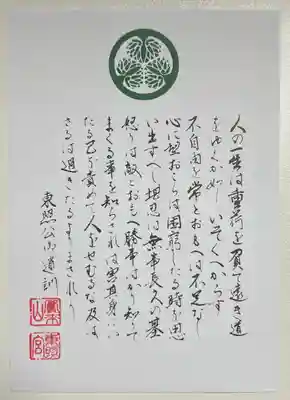 人の一生は重荷を負て遠き道
をゆくか如し いそくへからす
不自由を常とおもへは不足なし
心に望おこらは困窮したる時を思
い出すへし 堪忍は無事長久の基
怒りは敵とおもへ 勝事はかり知りて
まくる事を知らされは害其身にい
たる 己を責めて人をせむるな 及は
さるは過きたるよりまされり
東照公御遺訓
鳳来山
東照宮